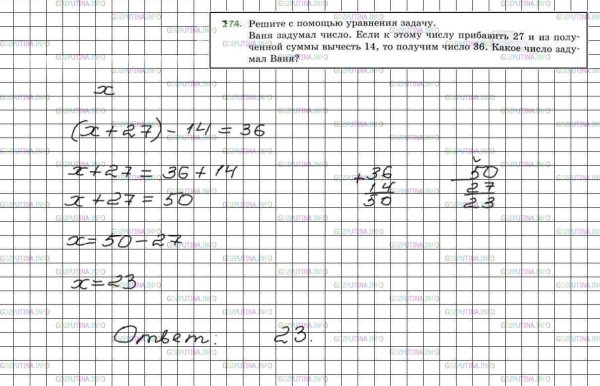 274. Решите с помощью уравнения задачу.
Ваня задумал число. Если к этому числу прибавить 27 и из полу-
ченной суммы вычесть 14, то получим число 36. Какое число заду-
мал Ваня?
x
(x+27)-14=36
x+27=36+14
x+27=50
x=50-27
x=23
+ 36
14
50
- 50
27
23
Ответ: 23.
GDZPUTINA.INFO